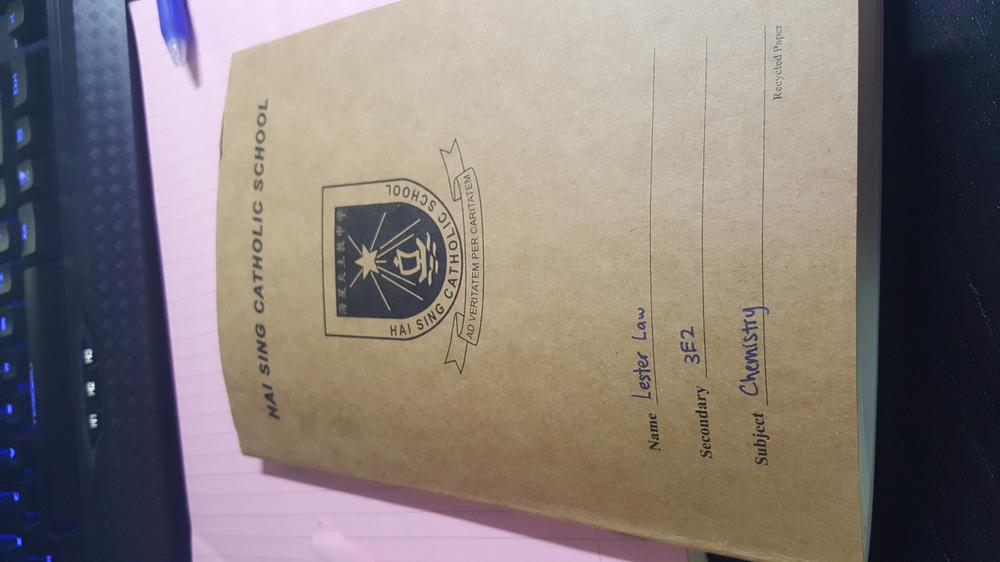 HAI SING CATHOLIC SCHOOL
海星天主教中学
HAI SING CATHOLIC SCHOOL
AD VERITATEM PER CARITATEM
Name Lester Law
Secondary 3F2
Subject Chemistry
Recycled Paper
M1 M2 M3